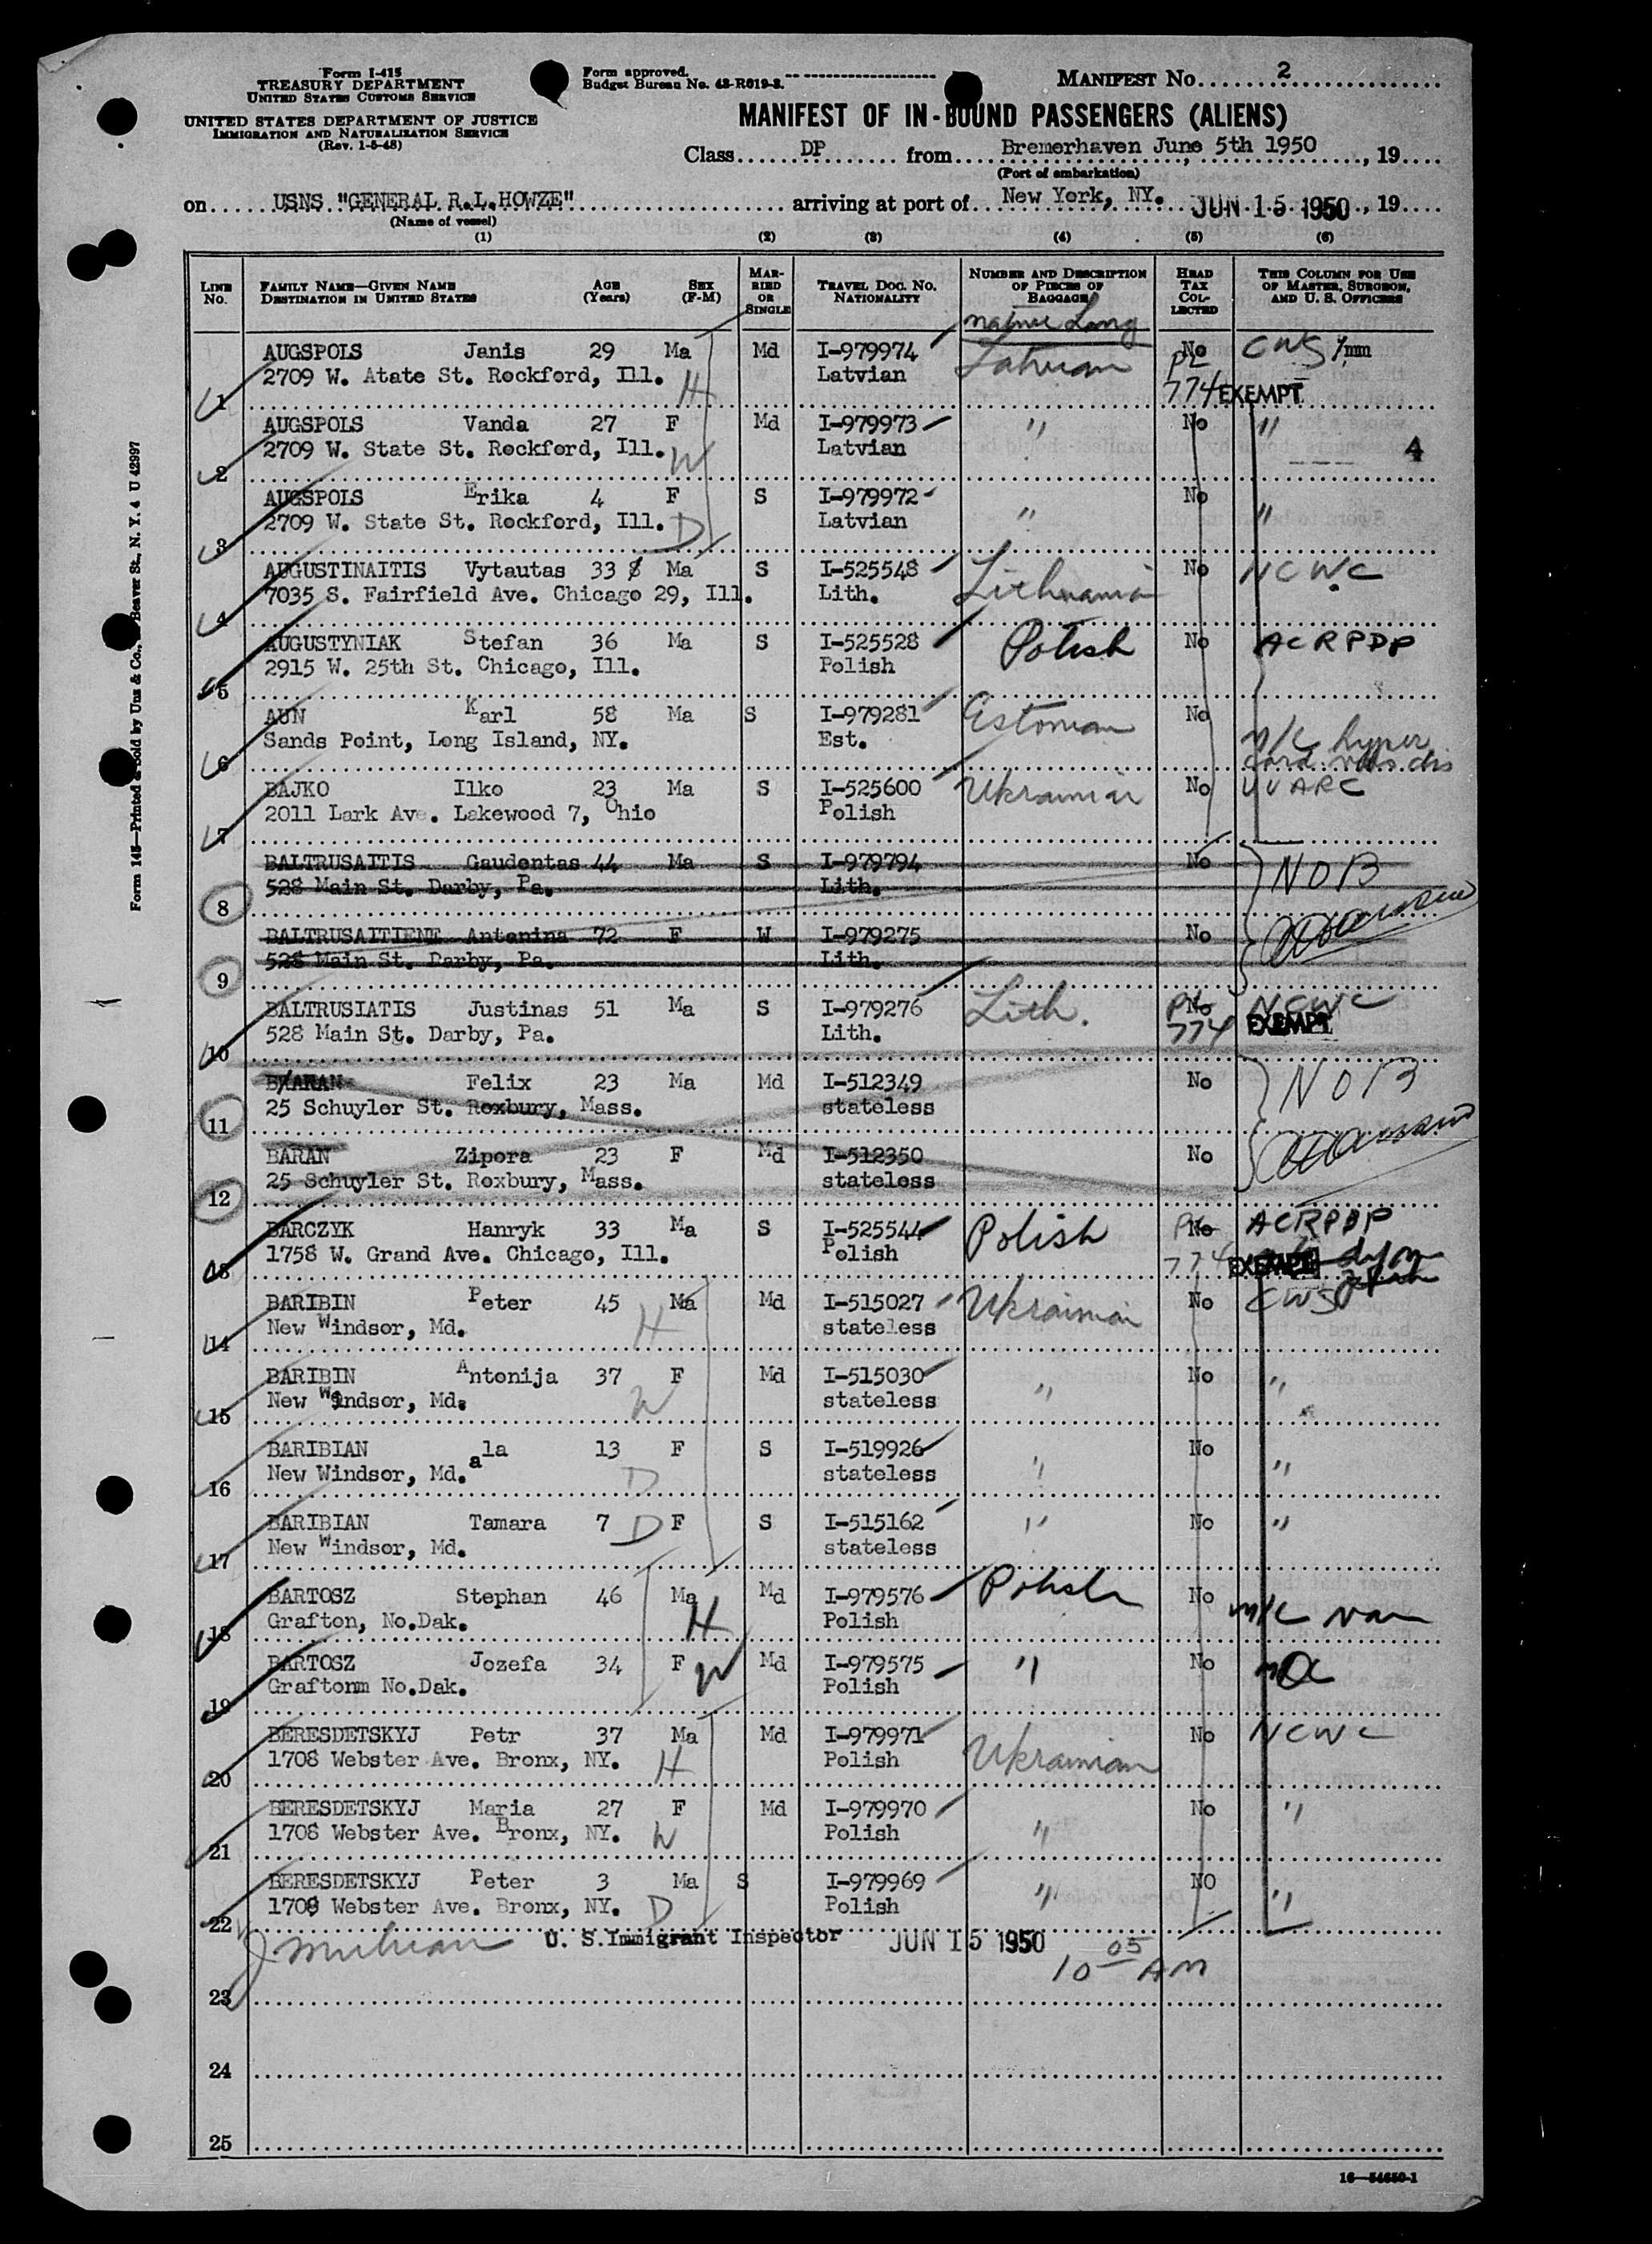 Form I-415
TREASURY DEPARTMENT
UNITED STATES CUSTOMS SERVICE
UNITED STATES DEPARTMENT OF JUSTICE
IMMIGRATION AND NATURALIZATION SERVICE
(Rev. 1-5-48)
Form approved.
Budget Bureau No. 43-R019-3.
MANIFEST NO. 2
MANIFEST OF IN-BOUND PASSENGERS (ALIENS)
Class DP from Bremerhaven June 5th 1950, 19
(Port of embarkation)
on USNS "GENERAL R.L.HOWZE" arriving at port of New York, NY. JUN 15 1950, 19
(Name of vessel)
(1) (2) (3) (4) (5) (6)
LINE NO.
FAMILY NAME—GIVEN NAME DESTINATION IN UNITED STATES
AGE (Years)
SEX (F-M)
MARRIED OR SINGLE
TRAVEL DOC. NO. NATIONALITY
NUMBER AND DESCRIPTION OF PIECES OF BAGGAGE
HEAD TAX COLLECTED
THIS COLUMN FOR USE OF MASTER, SURGEON, AND U. S. OFFICERS
native Lang
AUGSPOLS Janis 29 Ma Md I-979974 Latvian No CWS
1 2709 W. Atate St. Rockford, Ill. H Latvian PL 774 EXEMPT
AUGSPOLS Vanda 27 F Md I-979973 " No "
2 2709 W. State St. Rockford, Ill. W Latvian 4
AUGSPOLS Erika 4 F S I-979972 " No "
3 2709 W. State St. Rockford, Ill. D Latvian
AUGUSTINAITIS Vytautas 33 8 Ma S I-525548 Lithuania No NCWC
4 7035 S. Fairfield Ave. Chicago 29, Ill. Lith.
AUGUSTYNIAK Stefan 36 Ma S I-525528 Polish No ACRPDP
5 2915 W. 25th St. Chicago, Ill. Polish
AUN Karl 58 Ma S I-979281 Estonian No
6 Sands Point, Long Island, NY. Est. m/c hyper card vas dis
BAJKO Ilko 23 Ma S I-525600 Ukrainian No UUARC
7 2011 Lark Ave. Lakewood 7, Ohio Polish
BALTRUSAITIS Gaudentas 44 Ma S I-979794 No NOB
8 528 Main St. Darby, Pa. Lith.
BALTRUSAITIENE Antanina 72 F W I-979275 No
9 528 Main St. Darby, Pa. Lith.
BALTRUSIATIS Justinas 51 Ma S I-979276 Lith. No NCWC
10 528 Main St. Darby, Pa. Lith. PL 774 EXEMPT
BARAN Felix 23 Ma Md I-512349 No NOB
11 25 Schuyler St. Roxbury, Mass. stateless
BARAN Zipora 23 F Md I-512350 No
12 25 Schuyler St. Roxbury, Mass. stateless
BARCZYK Hanryk 33 Ma S I-525544 Polish No ACRPDP
13 1758 W. Grand Ave. Chicago, Ill. Polish PL 774 EXEMPT
BARIBIN Peter 45 Ma Md I-515027 Ukrainian No CWS
14 New Windsor, Md. H stateless
BARIBIN Antonija 37 F Md I-515030 " No "
15 New Windsor, Md. W stateless
BARIBIAN ala 13 F S I-519926 " No "
16 New Windsor, Md. D stateless
BARIBIAN Tamara 7 D F S I-515162 " No "
17 New Windsor, Md. stateless
BARTOSZ Stephan 46 Ma Md I-979576 Polish No
18 Grafton, No.Dak. H Polish m/c
BARTOSZ Jozefa 34 F W Md I-979575 " No
19 Graftonm No.Dak. Polish
BERESDETSKYJ Petr 37 Ma Md I-979971 Ukrainian No NCWC
20 1708 Webster Ave. Bronx, NY. H Polish
BERESDETSKYJ Maria 27 F Md I-979970 " No "
21 1708 Webster Ave. Bronx, NY. W Polish
BERESDETSKYJ Peter 3 Ma S I-979969 " NO "
22 1708 Webster Ave. Bronx, NY. D Polish
U. S. Immigrant Inspector JUN 15 1950
10 05 AM
23
24
25
16—54650-1
Form 145—Printed & Sold by Unz & Co., Beaver St., N. Y. 4 U 42997